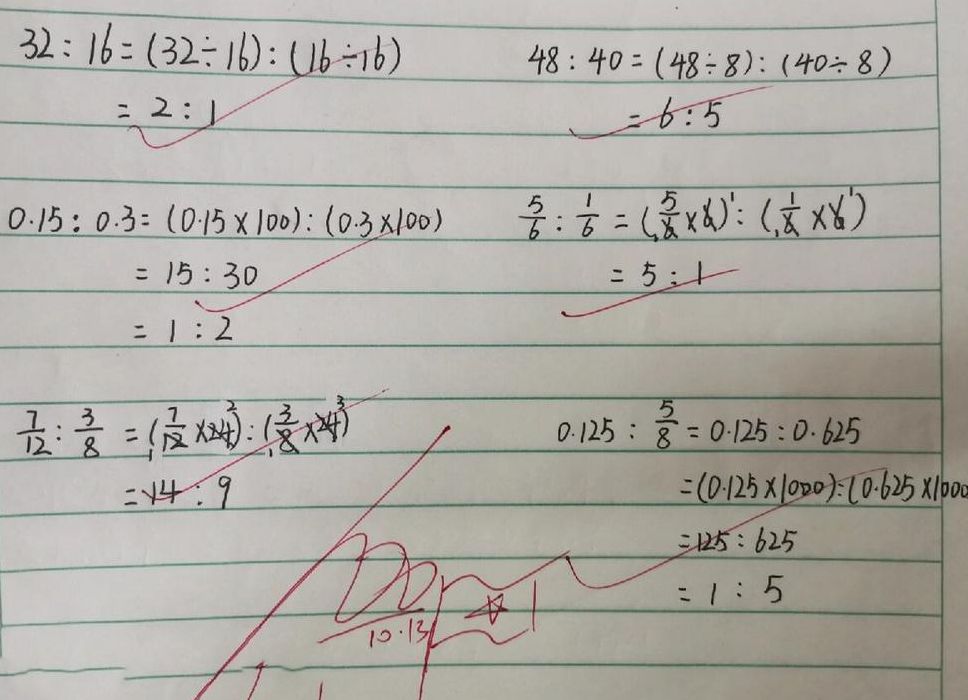 32 : 16 = (32÷16) : (16÷16)
= 2 : 1
48 : 40 = (48÷8) : (40÷8)
= 6 : 5
0.15 : 0.3 = (0.15×100) : (0.3×100)
= 15 : 30
= 1 : 2
5/6 : 1/6 = (5/6×6) : (1/6×6)
= 5 : 1
7/12 : 3/8 = (7/12×24) : (3/8×24)
= 14 : 9
0.125 : 5/8 = 0.125 : 0.625
= (0.125×1000) : (0.625×1000
= 125 : 625
= 1 : 5
10.13